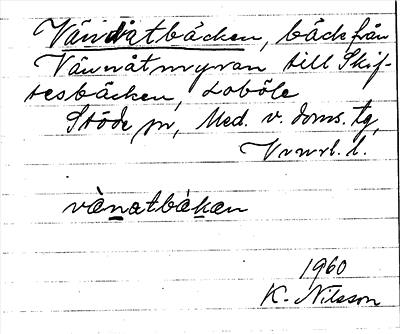 Vännåtbäcken, bäck från
Vännåtmyran till Skif-
tesbäcken, Loböle
Stöde sn, Med. v. doms. tg,
l.
vànatbäkan
1960
K. Nilsson